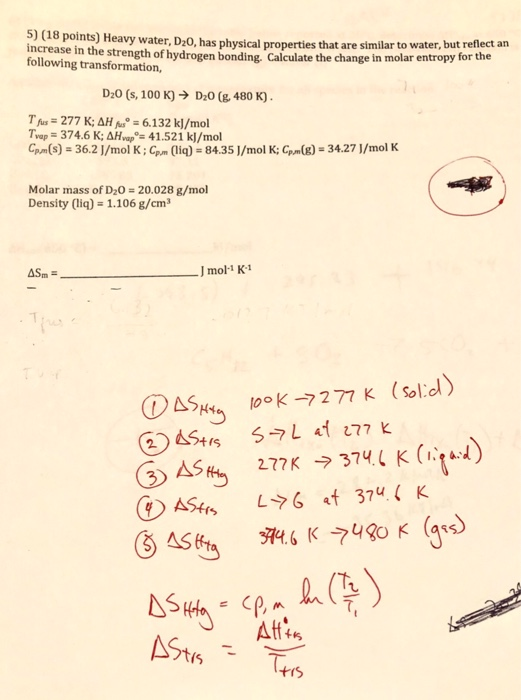 5) (18 points) Heavy water, D₂O, has physical properties that are similar to water, but reflect an
increase in the strength of hydrogen bonding. Calculate the change in molar entropy for the
following transformation,
D₂O (s, 100 K) → D₂O (g, 480 K).
T fus = 277 K; ΔH fus° = 6.132 kJ/mol
Tvap = 374.6 K; ΔHvap°= 41.521 kJ/mol
Cp,m(s) = 36.2 J/mol K; Cp,m (liq) = 84.35 J/mol K; Cp,m(g) = 34.27 J/mol K
Molar mass of D₂O = 20.028 g/mol
Density (liq) = 1.106 g/cm³
ΔSm = ____________________ J mol⁻¹ K⁻¹
① ΔSHtg 100K → 277 K (solid)
② ΔStrs S→L at 277 K
③ ΔSHtg 277K → 374.6 K (liquid)
④ ΔStrs L→G at 374.6 K
⑤ ΔSHtg 374.6 K → 480 K (gas)
ΔSHtg = Cp,m ln (T₂/T₁)
ΔStrs = ΔH°trs/Ttrs